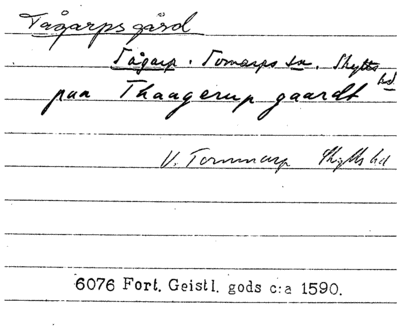 Tågarps gård
Tågarp. Tomarps sn. Skytts hd
paa Thaagerup gaardt
V. Tommarp Skytts hd
6076 Fort. Geistl. gods c:a 1590.